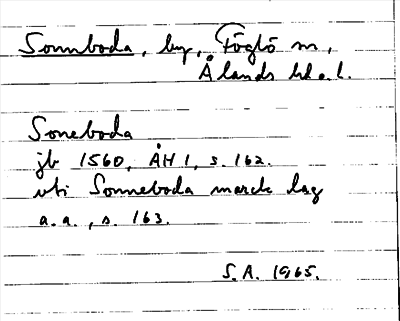 Sonnboda, by, Föglö sn,
Ålands hd o. l.
Soneboda
jb 1560, ÅH 1, s. 162.
uti Sonneboda marck lag
a.a., s. 163.
S.A. 1965.